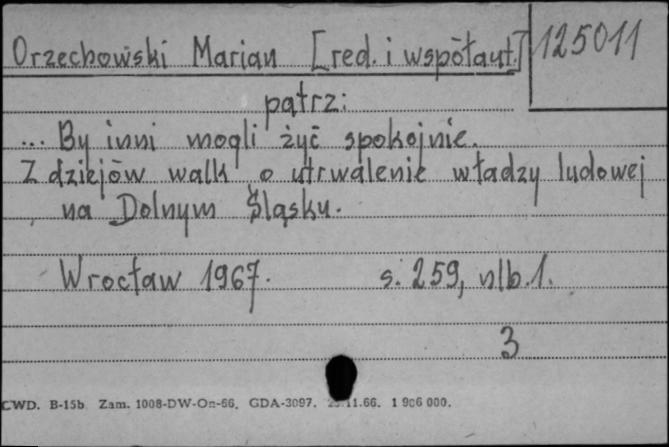 Orzechowski Marian [red. i współaut.] 125011
patrz:
... By inni mogli żyć spokojnie.
Z dziejów walk o utrwalenie władzy ludowej
na Dolnym Śląsku.
Wrocław 1967. s. 259, nlb. 1.
3
CWD. B-15b Zam. 1008-DW-On-66. GDA-3097. 11.66. 1 906 000.